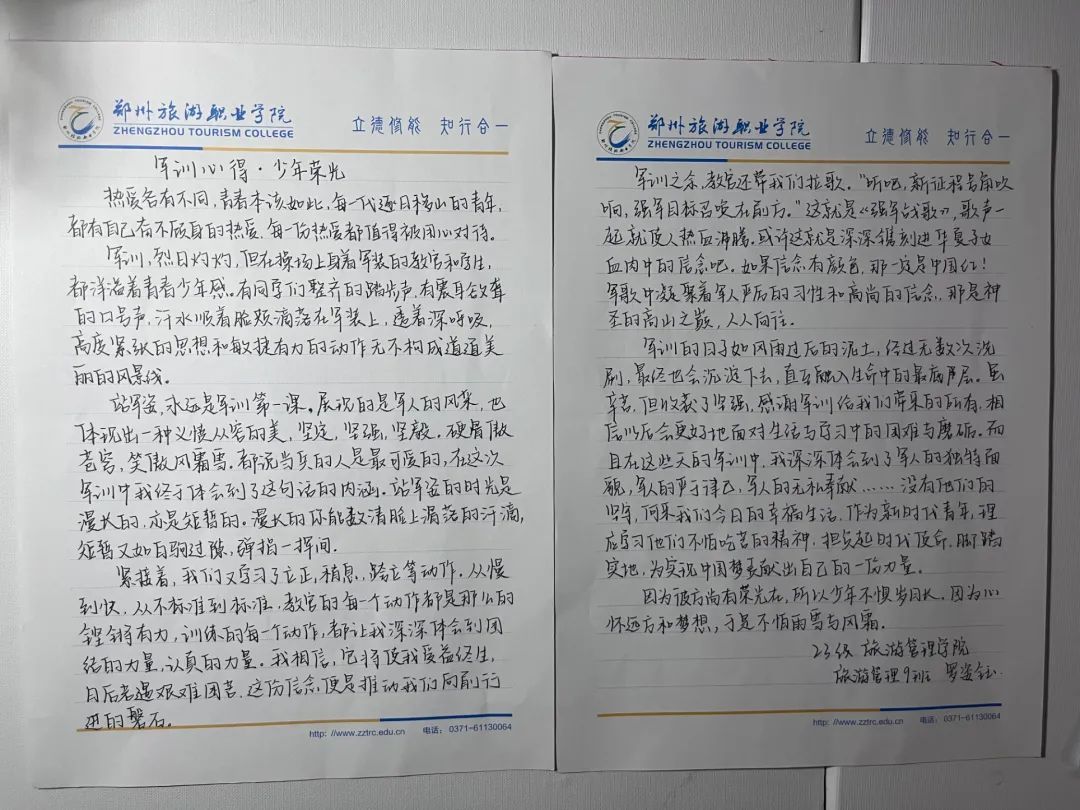 郑州旅游职业学院
ZHENGZHOU TOURISM COLLEGE
立德修能 知行合一
军训心得·少年荣光
热爱各有不同,青春本该如此,每一代逐日移山的青年,
都有自己奋不顾身的热爱,每一份热爱都值得被用心对待。
军训,烈日灼灼,但在操场上身着军装的教官和学生,
都洋溢着青春少年感。有同学们整齐的踏步声,有震耳欲聋
的口号声,汗水顺着脸颊滴落在军装上,透着深呼吸,
高度紧张的思想和敏捷有力的动作无不构成道道美
丽的风景线。
站军姿,永远是军训第一课。展现的是军人的风采,也
体现出一种义愤从容的美,坚定,坚强,坚毅。硬肩傲
苍穹,笑傲风霜雪。都说当兵的人是最可爱的,在这次
军训中我终于体会到了这句话的内涵。站军姿的时光是
漫长的,亦是短暂的。漫长的你能数清脸上滴落的汗滴,
短暂又如白驹过隙,弹指一挥间。
紧接着,我们又学习了立正,稍息,跨立等动作。从慢
到快,从不标准到标准,教官的每一个动作都是那么的
铿锵有力,训练的每一个动作,都让我深深体会到团
结的力量,认真的力量。我相信,它将使我受益终生,
日后若遇艰难困苦,这份信念便是推动我们向前行
进的磐石。
http: //www.zztrc.edu.cn 电话: 0371-61130064
郑州旅游职业学院
ZHENGZHOU TOURISM COLLEGE
立德修能 知行合一
军训之余,教官还带我们拉歌。“听吧,新征程号角吹
响,强军目标召唤在前方。”这就是《强军战歌》,歌声一
起就使人热血沸腾。或许这就是深深镌刻进华夏子女
血肉中的信念吧。如果信念有颜色,那一定是中国红!
军歌中凝聚着军人严后的习性和高尚的信念,那是神
圣的高山之巅,人人向往。
军训的日子如风雨过后的泥土,经过无数次洗
刷,最终也会沉淀下去,直至融入生命中的最底层。虽
辛苦,但收获了坚强,感谢军训给我们带来的所有,相
信以后会更好地面对生活与学习中的困难与磨砺。而
且在这些天的军训中,我深深体会到了军人的独特面
貌,军人的严于律己,军人的无私奉献……没有他们的
坚守,何来我们今日的幸福生活。作为新时代青年,理
应学习他们不怕吃苦的精神,担负起时代使命,脚踏
实地,为实现中国梦贡献出自己的一份力量。
因为彼方尚有荣光在,所以少年不惧岁月长。因为心
怀远方和梦想,于是不怕雨雪与风霜。
23级 旅游管理学院
旅游管理9班 罗姿钰
http: //www.zztrc.edu.cn 电话: 0371-61130064